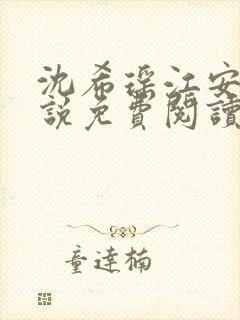 沈希瑶江安
说免費閱讀
童達楠